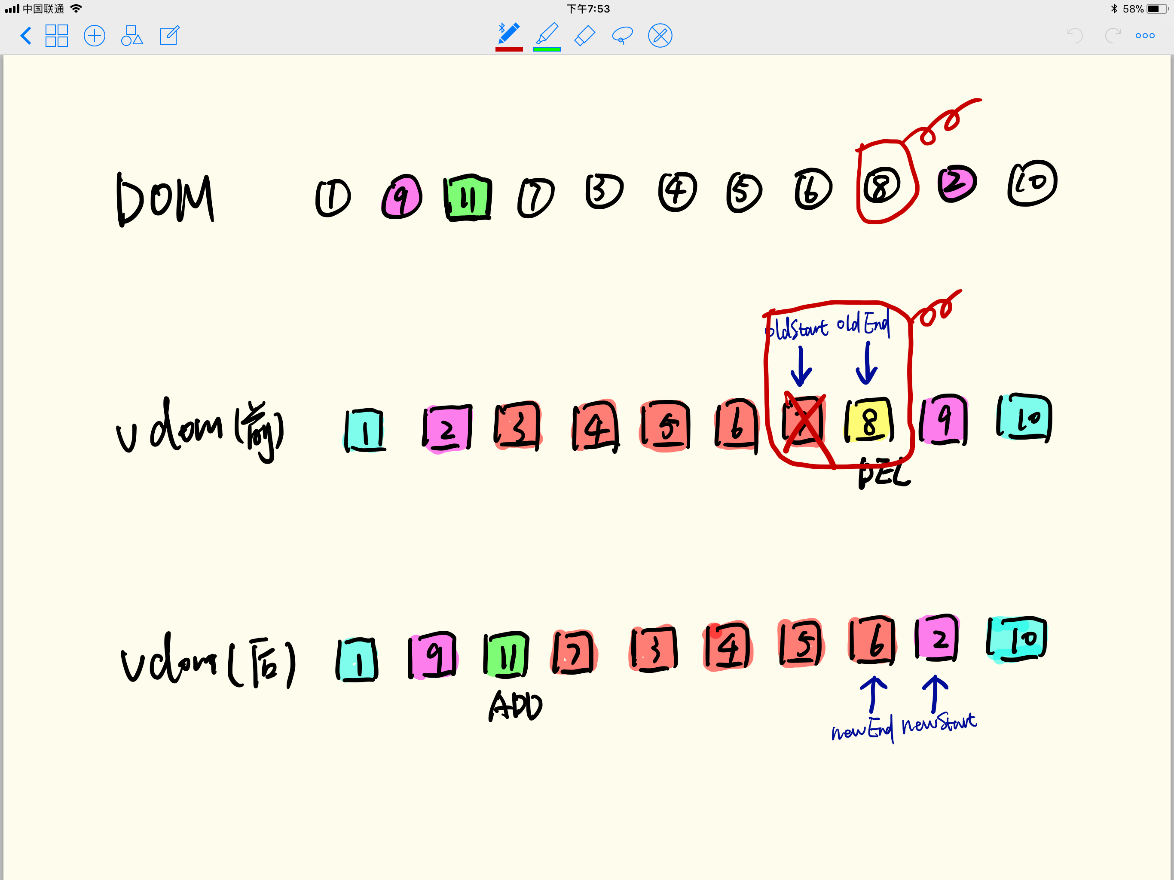 中国联通 下午7:53 58%
DOM 1 9 11 7 3 4 5 6 8 2 10
oldStart oldEnd
vdom(前) 1 2 3 4 5 6 7 8 9 10
DEL
vdom(后) 1 9 11 7 3 4 5 6 2 10
ADD
newEnd newStart